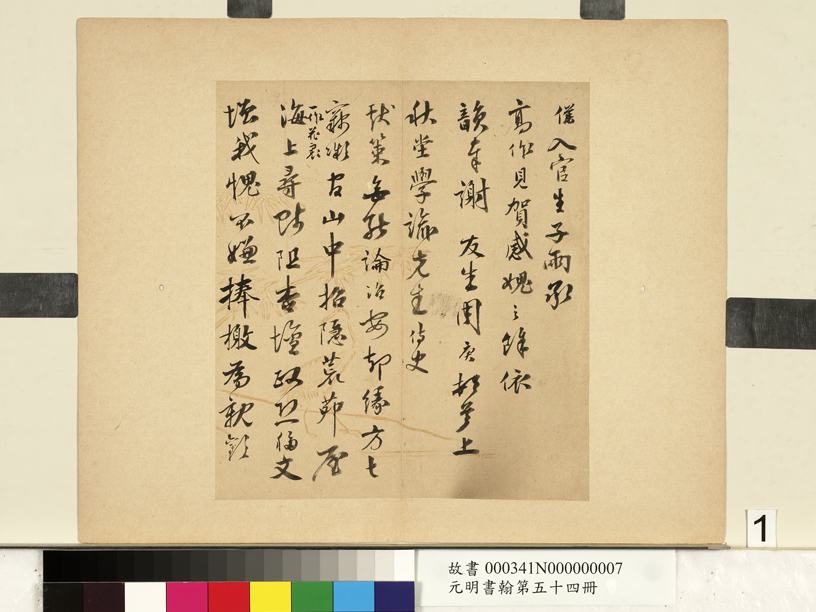 僕入官生子兩承
高作見賀感愧〻餘依
韻奉謝 友生周庚頓首上
秋堂學諭先生侍史
獻策無能論治安却緣方士
官山中招隱荒茆屋
作花影
海上尋 阻杏壇政恐 文
增我愧不嫌捧檄為親歡
1
故書 000341N000000007
元明書翰第五十四冊